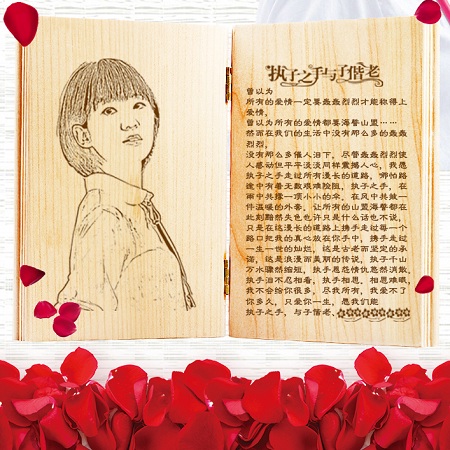 执子之手与子偕老
曾以为
所有的爱情一定要轰轰烈烈才能称得上
爱情，
曾以为所有的爱情都要海誓山盟……
然而在我们的生活中没有那么多的轰轰
烈烈，
没有那么多催人泪下，尽管轰轰烈烈使
人感动但平平淡淡同样震撼人心，我愿
执子之手走过所有漫长的道路，哪怕路
途中有着无数艰难险阻，执子之手，在
雨中共撑一项小小的伞，在风中共披一
件温暖的外套，让所有的山盟海誓都在
此刻黯然失色也许只是什么话也不说，
只是在这漫长的道路上携手走过每一个
路口把我的真心放在你手中，携手走过
一生一世的灿烂，这是古老而坚定的承
诺，这是浪漫而美丽的传说，执手千山
万水骤然缩短，执手恩怨情仇悠然消散，
执手泪不忍相看，执手相思，相思难眠
我不会给你很多，尽我所有，我爱不了
你多久，只爱你一生，愿我们能
执子之手，与子偕老、